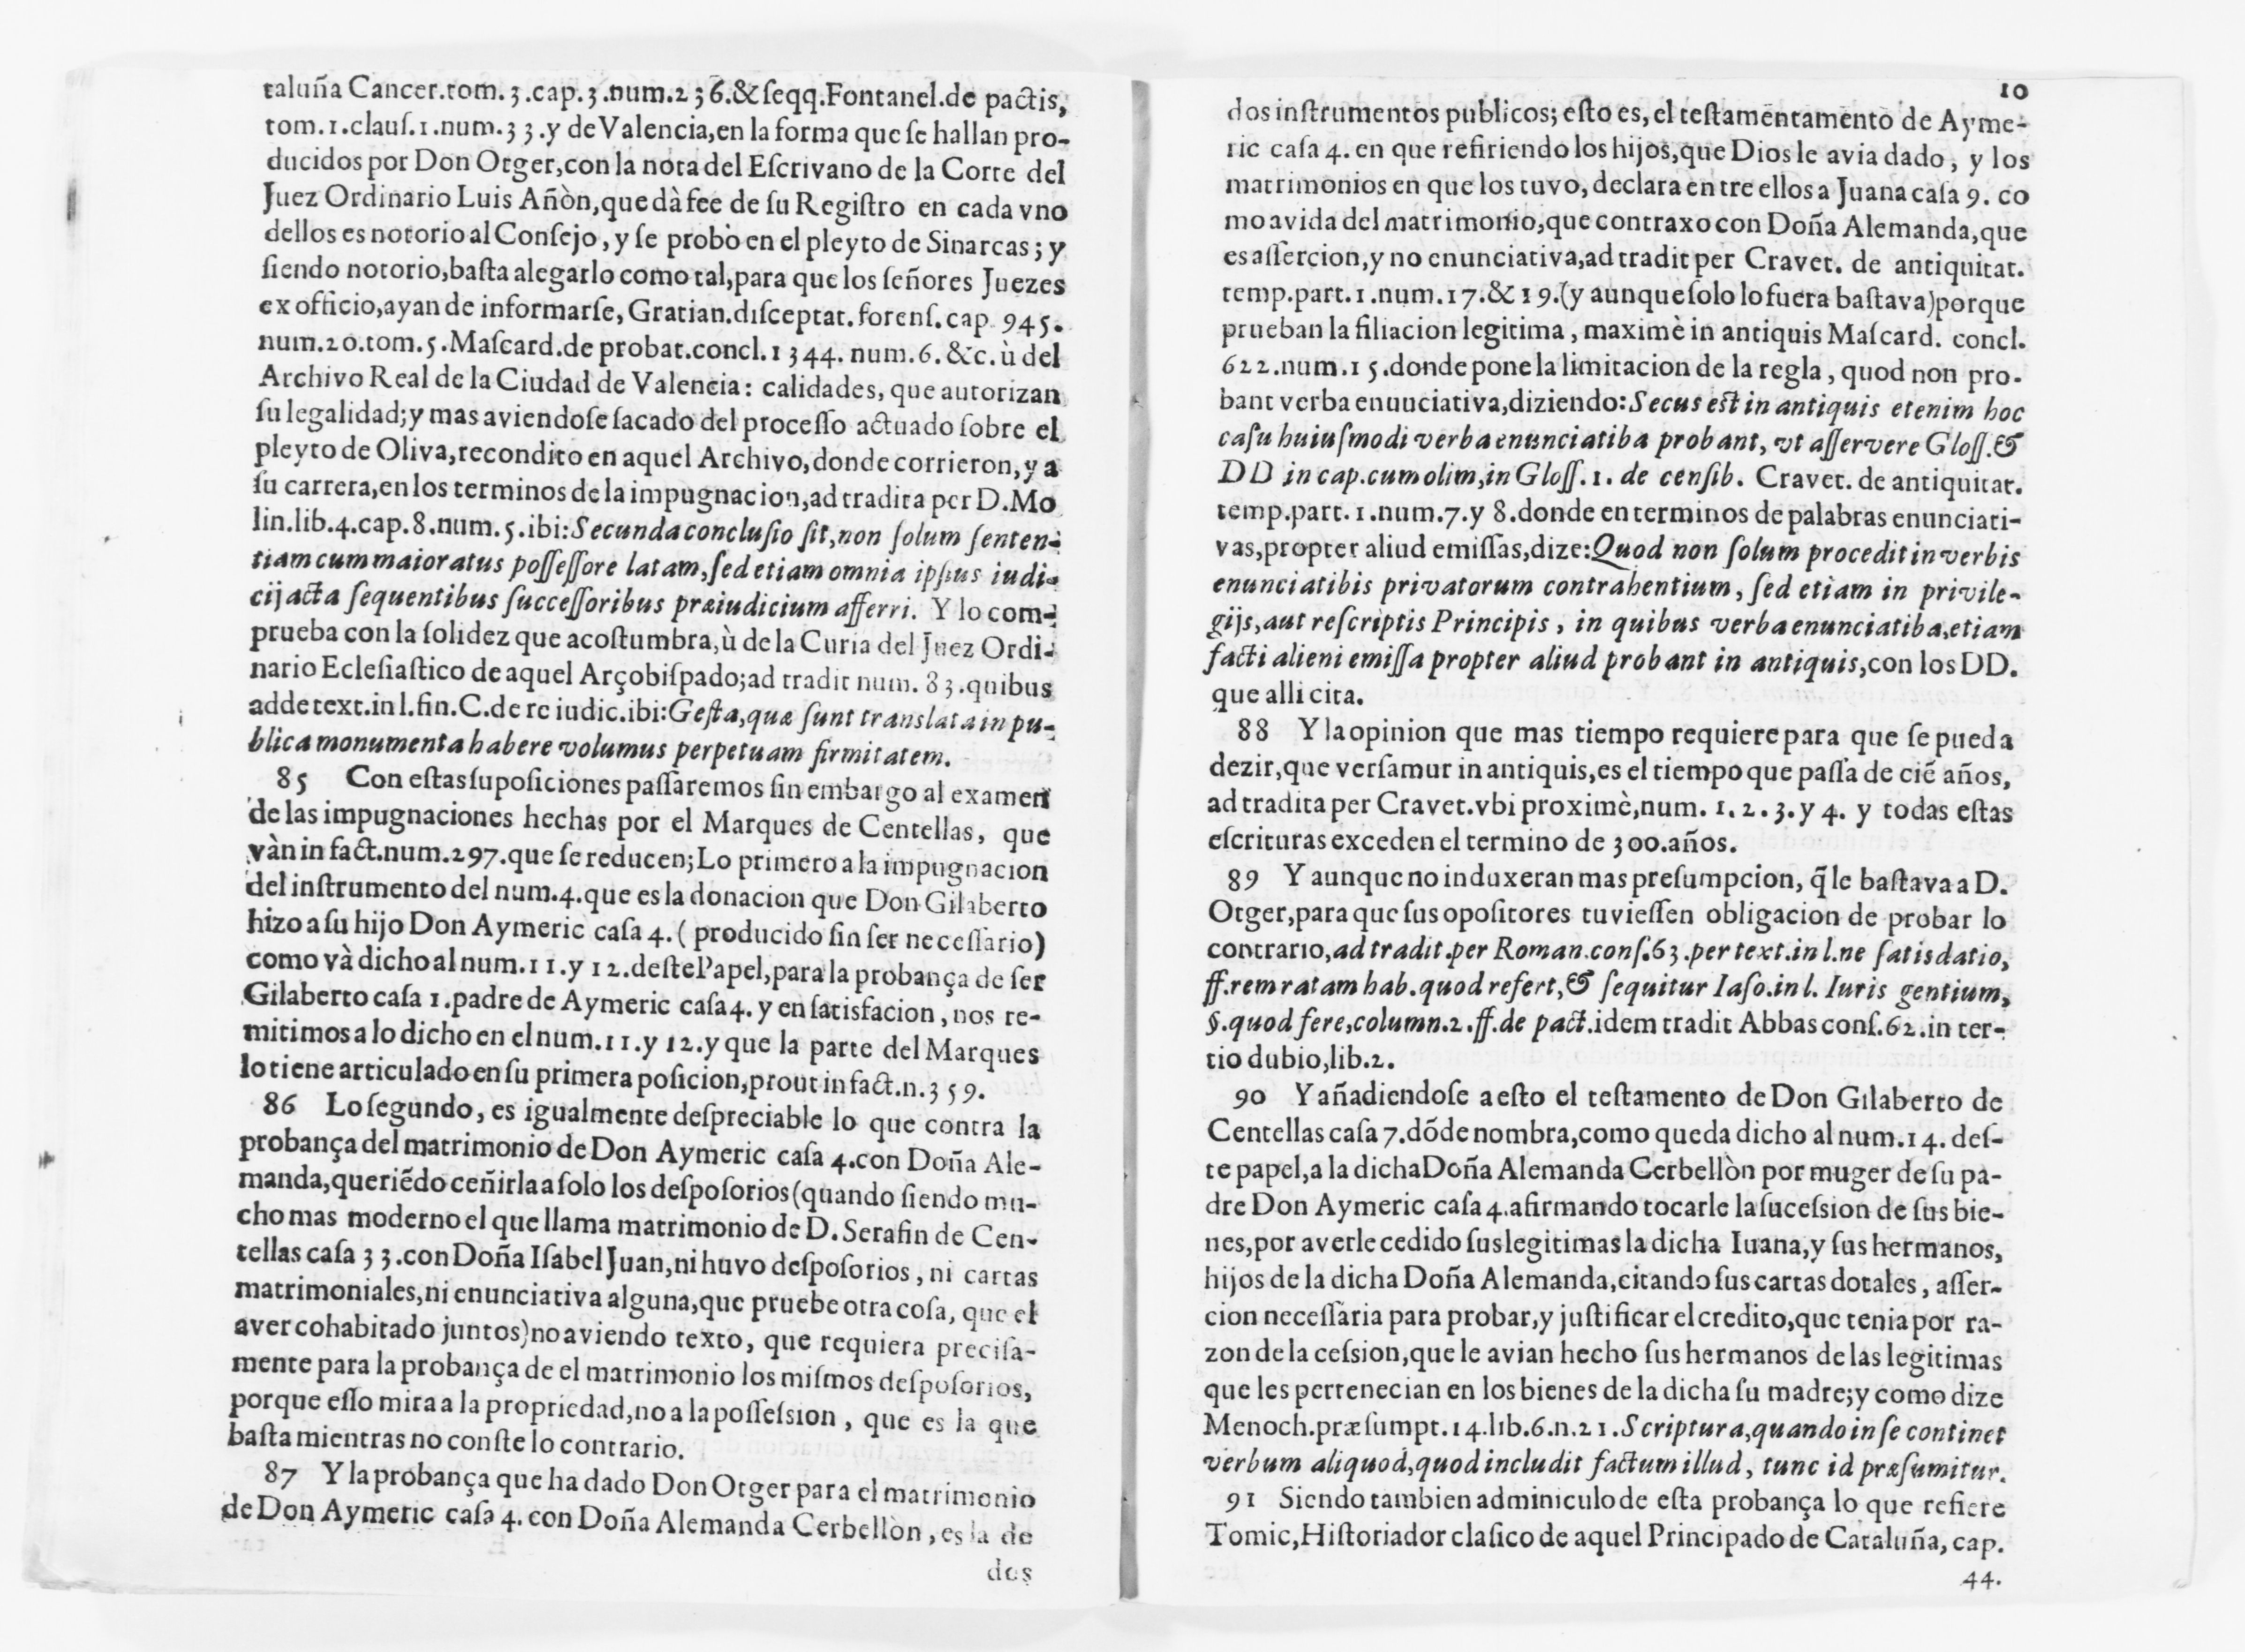 taluña Cancer.tom.3.cap.3.num.236.& ſeqq.Fontanel.de pactis,
tom.1.clauſ.1.num.33.y de Valencia,en la forma que ſe hallan pro-
ducidos por Don Otger,con la nota del Eſcrivano de la Corte del
Juez Ordinario Luis Añòn,que dà fee de ſu Regiſtro en cada vno
dellos es notorio al Conſejo, y ſe probò en el pleyto de Sinarcas; y
ſiendo notorio,baſta alegarlo como tal,para que los ſeñores Juezes
ex officio,ayan de informarſe, Gratian.diſceptat. forenſ.cap. 945.
num.20.tom.5.Maſcard.de probat.concl.1344. num.6. &c. ù del
Archivo Real de la Ciudad de Valencia: calidades, que autorizan
ſu legalidad;y mas aviendoſe ſacado del proceſſo actuado ſobre el
pleyto de Oliva,recondito en aquel Archivo,donde corrieron,y a
ſu carrera,en los terminos de la impugnacion,ad tradita per D.Mo
lin.lib.4.cap.8.num.5.ibi:Secunda concluſio ſit,non ſolum ſenten-
tiam cum maioratus poſſeſſore latam,ſed etiam omnia ipſius iudi-
cij acta ſequentibus ſucceſſoribus præiudicium afferri. Y lo com-
prueba con la ſolidez que acoſtumbra,ù de la Curia del Juez Ordi-
nario Ecleſiaſtico de aquel Arçobiſpado;ad tradit num. 83.quibus
adde text.in l.fin.C.de re iudic.ibi:Geſta,quæ ſunt translata in pu-
blica monumenta habere volumus perpetuam firmitatem.
85 Con eſtas ſupoſiciones paſſaremos ſin embargo al examen
de las impugnaciones hechas por el Marques de Centellas, que
vàn in fact.num.297.que ſe reducen;Lo primero a la impugnacion
del inſtrumento del num.4.que es la donacion que Don Gilaberto
hizo a ſu hijo Don Aymeric caſa 4. ( producido ſin ſer neceſſario)
como và dicho al num.11.y 12.deſte Papel,para la probança de ſer
Gilaberto caſa 1.padre de Aymeric caſa 4. y en ſatisfacion, nos re-
mitimos a lo dicho en el num.11.y 12.y que la parte del Marques
lo tiene articulado en ſu primera poſicion,prout in fact.n.359.
86 Lo ſegundo, es igualmente deſpreciable lo que contra la
probança del matrimonio de Don Aymeric caſa 4.con Doña Ale-
manda,queriẽdo ceñirla a ſolo los deſpoſorios (quando ſiendo mu-
cho mas moderno el que llama matrimonio de D. Serafin de Cen-
tellas caſa 33.con Doña Iſabel Juan,ni huvo deſpoſorios, ni cartas
matrimoniales,ni enunciativa alguna,que pruebe otra coſa, que el
aver cohabitado juntos)no aviendo texto, que requiera preciſa-
mente para la probança de el matrimonio los miſmos deſpoſorios,
porque eſſo mira a la propriedad,no a la poſſeſsion, que es la que
baſta mientras no conſte lo contrario.
87 Y la probança que ha dado Don Otger para el matrimonio
de Don Aymeric caſa 4. con Doña Alemanda Cerbellòn, es la de
dos
10
dos inſtrumentos publicos; eſto es, el teſtamẽntamẽnto de Ayme-
ric caſa 4. en que refiriendo los hijos,que Dios le avia dado, y los
matrimonios en que los tuvo, declara entre ellos a Juana caſa 9. co
mo avida del matrimonio,que contraxo con Doña Alemanda,que
es aſſercion,y no enunciativa,ad tradit per Cravet. de antiquitat.
temp.part.1.num.17.& 19.(y aunque ſolo lo fuera baſtava)porque
prueban la filiacion legitima, maximè in antiquis Maſcard. concl.
622.num.15.donde pone la limitacion de la regla, quod non pro-
bant verba enuuciativa,diziendo:Secus eſt in antiquis etenim hoc
caſu huiuſmodi verba enunciatiba probant, vt aſſervere Gloſſ.&
DD in cap.cum olim,in Gloſſ.1. de cenſib. Cravet. de antiquitat.
temp.part. 1.num.7.y 8.donde en terminos de palabras enunciati-
vas,propter aliud emiſſas,dize:Quod non ſolum procedit in verbis
enunciatibis privatorum contrahentium, ſed etiam in privile-
gijs,aut reſcriptis Principis, in quibus verba enunciatiba,etiam
facti alieni emiſſa propter aliud probant in antiquis,con los DD.
que alli cita.
88 Y la opinion que mas tiempo requiere para que ſe pueda
dezir,que verſamur in antiquis,es el tiempo que paſſa de ciẽ años,
ad tradita per Cravet.vbi proximè,num. 1. 2. 3. y 4. y todas eſtas
eſcrituras exceden el termino de 300.años.
89 Y aunque no induxeran mas preſumpcion, q̃ le baſtava a D.
Otger,para que ſus opoſitores tuvieſſen obligacion de probar lo
contrario,ad tradit.per Roman.conſ.63.per text.in l.ne ſatisdatio,
ff.rem ratam hab.quod refert,& ſequitur Iaſo.in l. Iuris gentium,
§.quod fere,column.2.ff.de pact.idem tradit Abbas conſ.62.in ter-
tio dubio,lib.2.
90 Y añadiendoſe a eſto el teſtamento de Don Gilaberto de
Centellas caſa 7.dõde nombra,como queda dicho al num.14. deſ-
te papel,a la dicha Doña Alemanda Cerbellòn por muger de ſu pa-
dre Don Aymeric caſa 4.afirmando tocarle la ſuceſsion de ſus bie-
nes,por averle cedido ſus legitimas la dicha Iuana,y ſus hermanos,
hijos de la dicha Doña Alemanda,citando ſus cartas dotales, aſſer-
cion neceſſaria para probar,y juſtificar el credito,que tenia por ra-
zon de la ceſsion,que le avian hecho ſus hermanos de las legitimas
que les pertenecian en los bienes de la dicha ſu madre;y como dize
Menoch.præſumpt.14.lib.6.n.21.Scriptura,quando in ſe continet
verbum aliquod,quod includit factum illud, tunc id præſumitur.
91 Siendo tambien adminiculo de eſta probança lo que refiere
Tomic,Hiſtoriador claſico de aquel Principado de Cataluña, cap.
44.